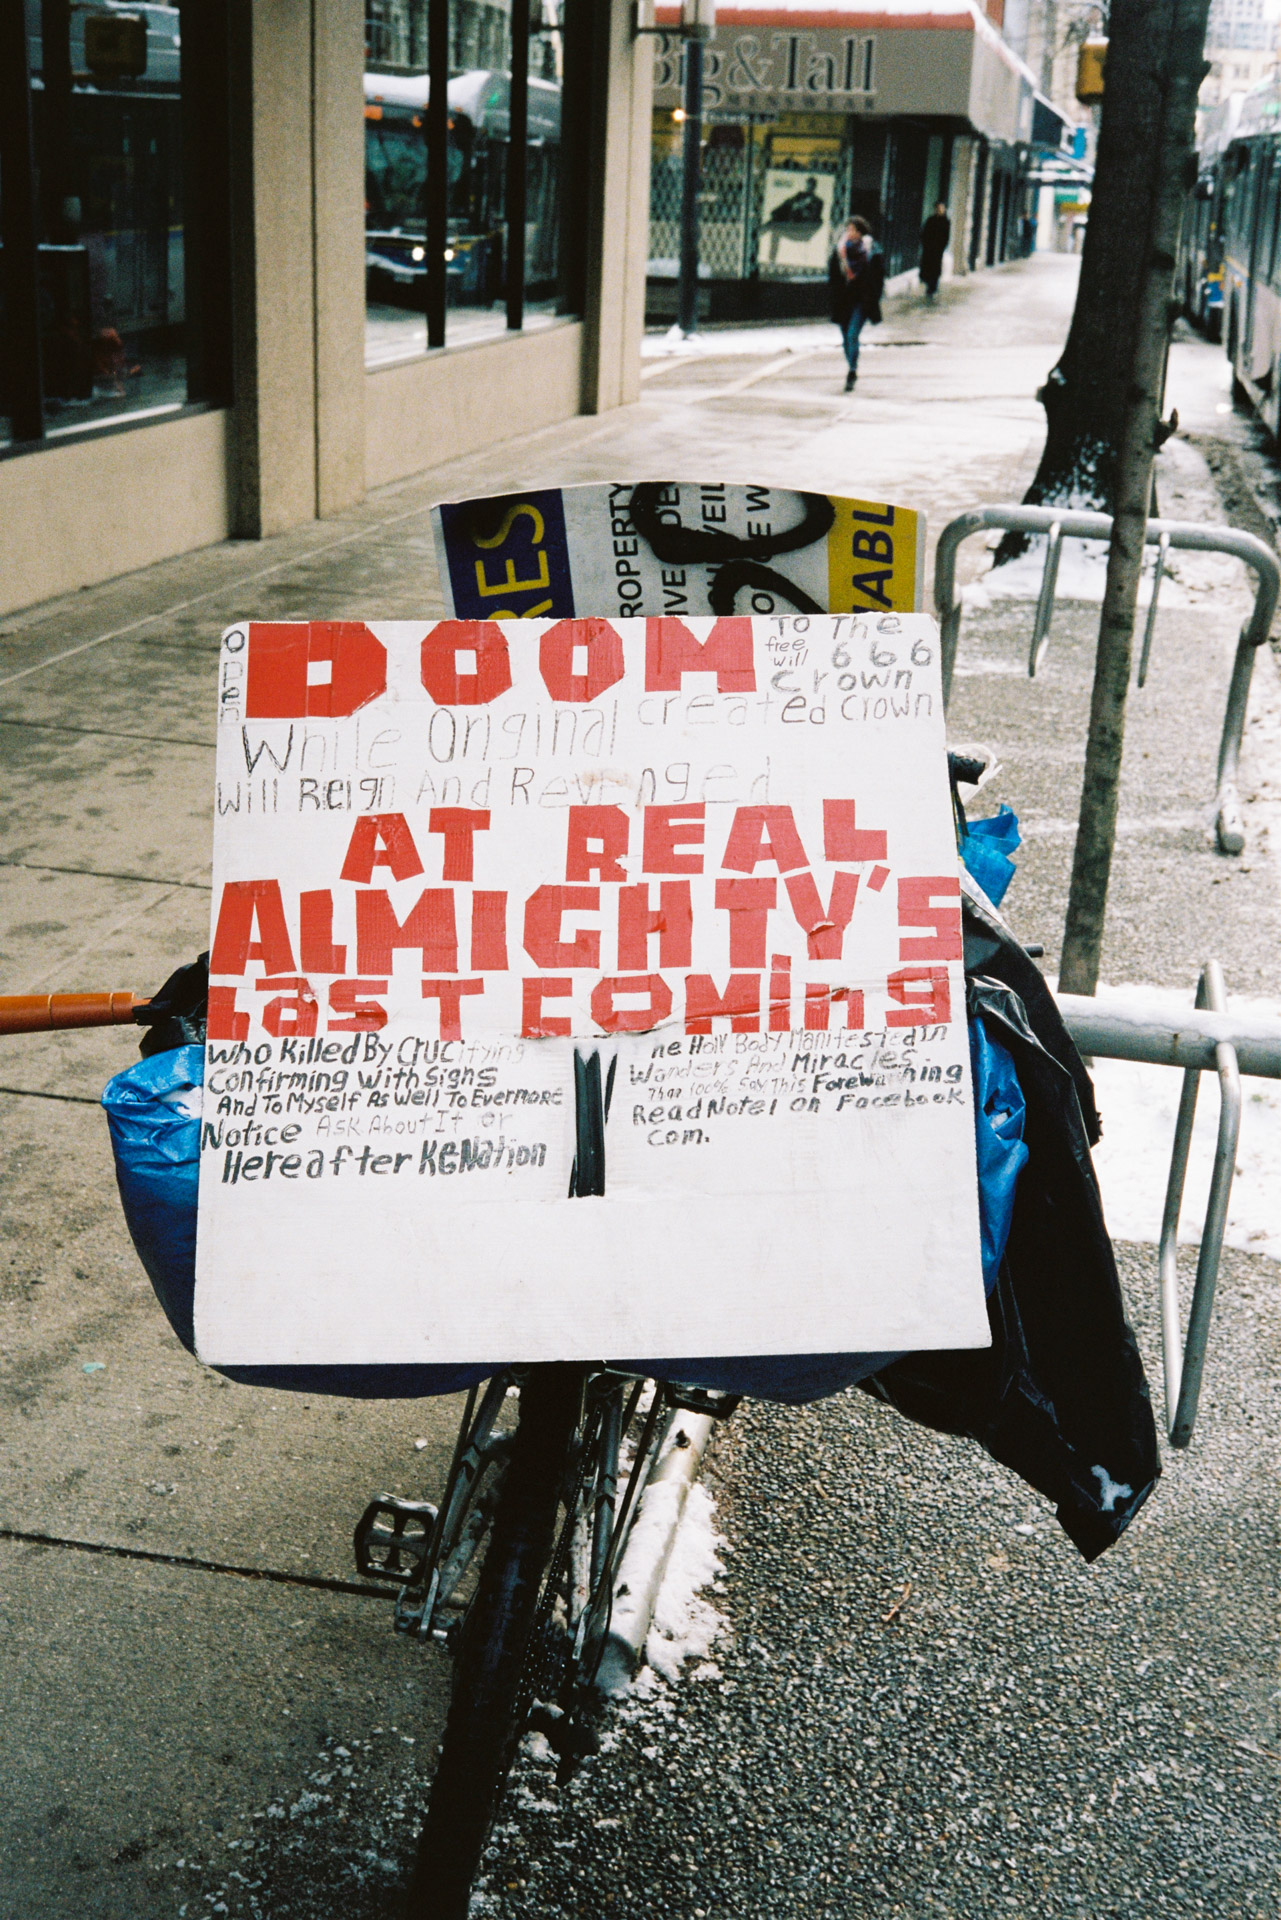 Big & Tall
MENSWEAR
RES
ROPERTY
IVE DE
VEIL
OE W
ABL
Open DOOM To The
free will 666
Crown
While Original created Crown
Will Reign And Revenged
AT REAL
ALMIGHTY'S
LasT COMing
Who Killed By Crucifying The Holy Body Manifested In
Confirming With Signs Wonders And Miracles.
And To Myself As Well To Evermore Than 100% Say This Forewarning
Notice Ask About It or Read Note1 on Facebook
Hereafter KGNation com.